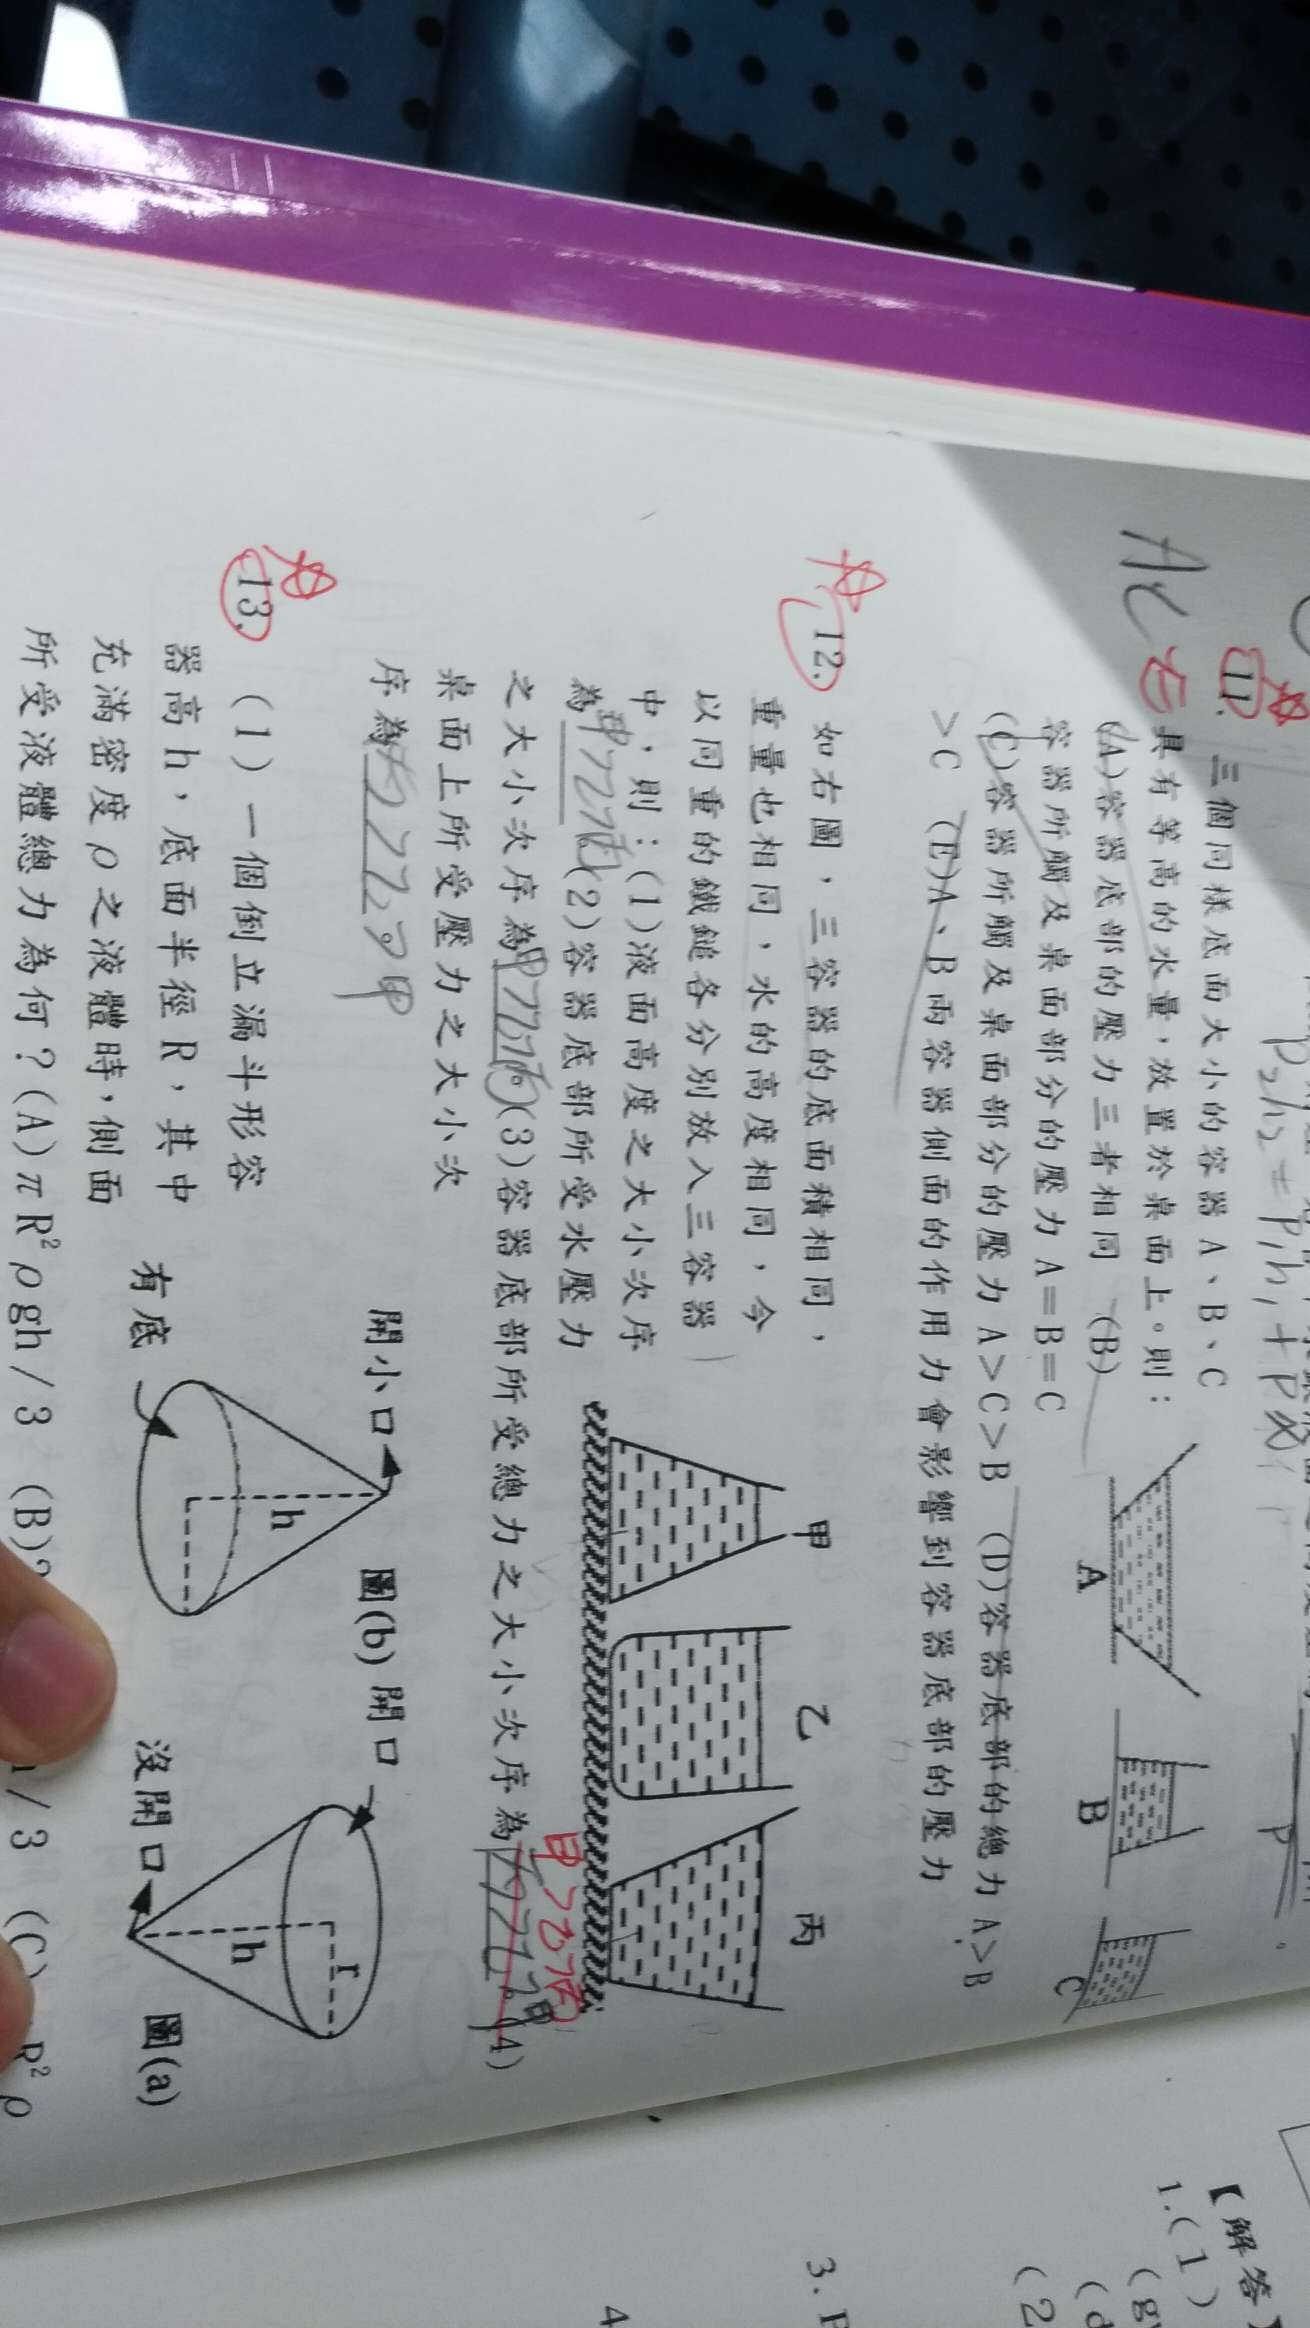 11. 三個同樣底面大小的容器 A、B、C
具有等高的水量，放置於桌面上。則：
(A)容器底部的壓力三者相同 (B)
容器所觸及桌面部分的壓力 A＝B＝C
(C)容器所觸及桌面部分的壓力 A＞C＞B (D)容器底部的總力 A＞B
＞C (E)A、B 兩容器側面的作用力會影響到容器底部的壓力
A
B
C
12. 如右圖，三容器的底面積相同，
重量也相同，水的高度相同，今
以同重的鐵鎚各分別放入三容器
中，則：(1)液面高度之大小次序
為甲>乙>丙(2)容器底部所受水壓力
之大小次序為甲>乙>丙(3)容器底部所受總力之大小次序為丙>乙>甲(4)
甲>乙>丙
桌面上所受壓力之大小次
序為丙>乙>甲
甲
乙
丙
13. (1)一個倒立漏斗形容
器高 h，底面半徑 R，其中
充滿密度ρ之液體時，側面
所受液體總力為何？(A)πR²ρgh/3 (B)
/3 (C) R²ρ
開小口
圖(b)
開口
有底
h
沒開口
h
r
圖(a)
【解答】
1.(1)
(2
3.
4